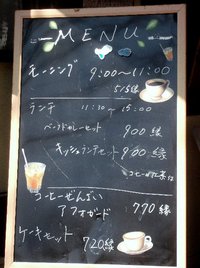 MENU
モーニング 9:00〜11:00
515縁
ランチ 11:30〜15:00
ベーグルカレーセット 900縁
キッシュランチセット 900縁
コーヒーぜんざい
アフォガード 790縁
ケーキセット 720縁